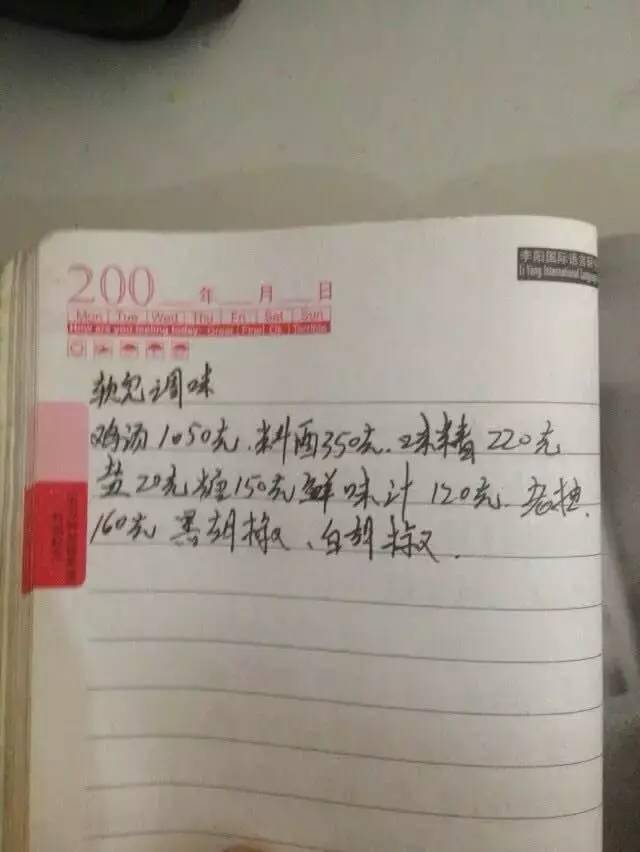 200 年 月 日
Mon Tue Wed Thu Fri Sat Sun
How are you feeling today Great Fine Ok Terrible
李阳国际语言
Li Yang International
软兜调味
鸡汤1050克.料酒350克.味精220克
盐20克糖150克鲜味汁120克.老抽.
160克 黑胡椒、白胡椒.